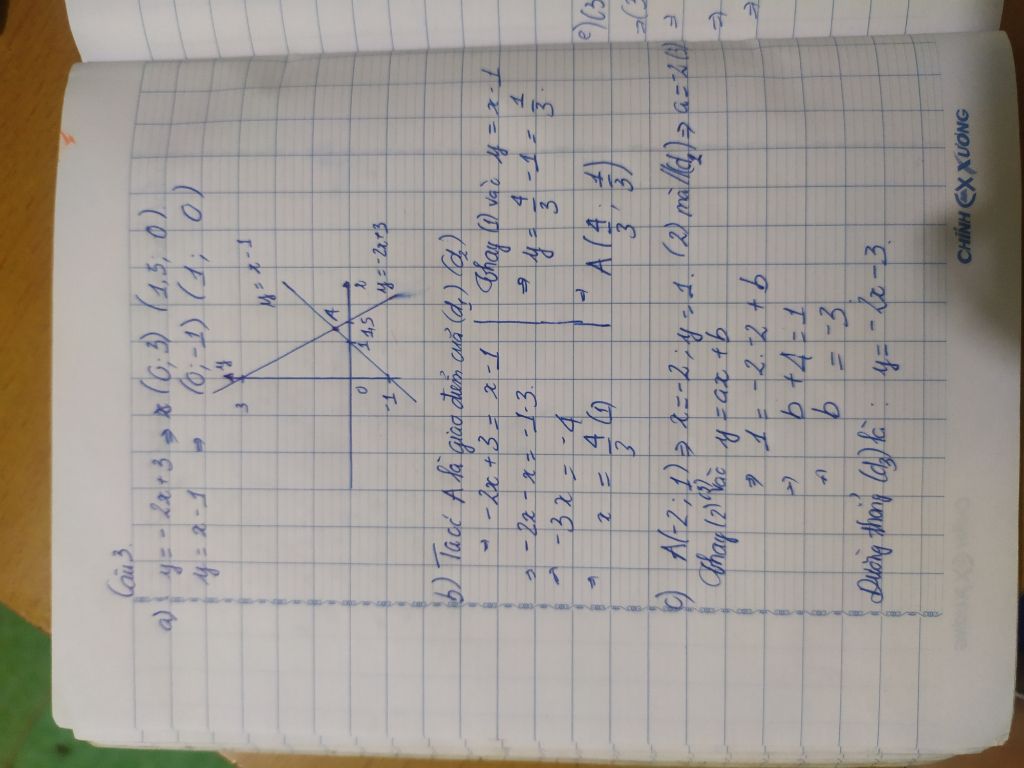 Câu 3
a) y = -2x+3 => (0; 3) (1,5; 0)
y = x-1 => (0; -1) (1; 0)
y
y = x-1
3
A
0
1
1,5
x
-1
y = -2x+3
b) Ta có A là giao điểm của (d₁) (d₂)
→ -2x+3 = x-1
=> -2x-x = -1-3
=> -3x = -4
=> x = 4/3 (1)
Thay (1) vào y = x-1
=> y = 4/3 - 1 = 1/3.
=> A(4/3; 1/3)
c) A(-2; 1) => x = -2; y = 1. (2) mà //(d₁) => a = -2 (1)
Thay (2) (1) vào y = ax+b
=> 1 = -2.-2+b
=> b+4 = 1
=> b = -3
Đường thẳng (d₃) là: y = -2x-3.
e) (3
=> (3
=>
=>
=>
CHÍNH XƯƠNG